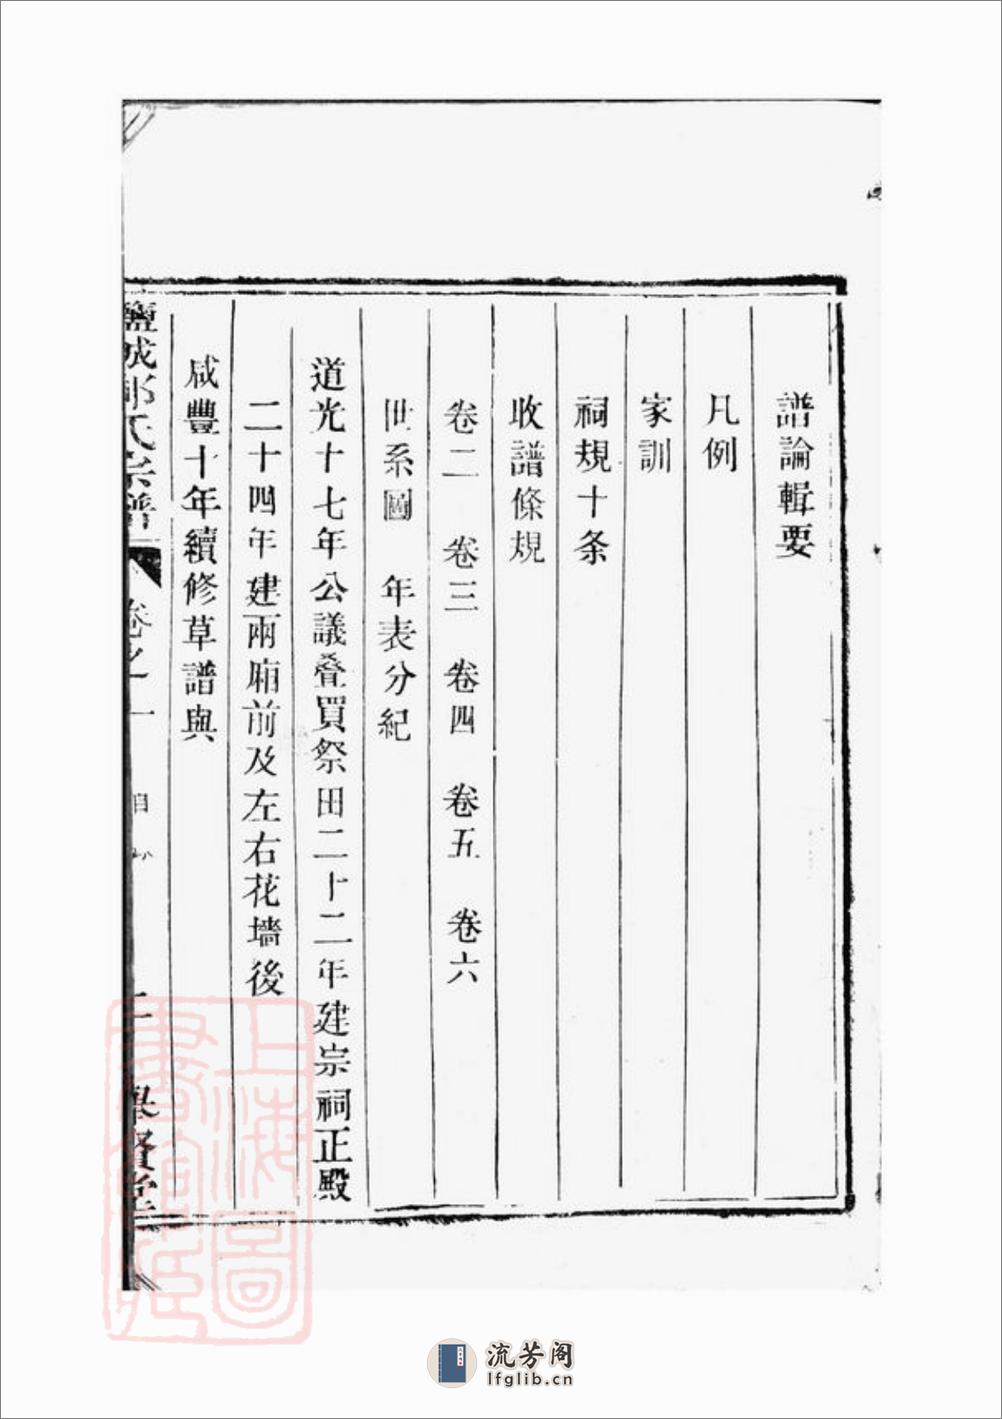 譜論輯要
凡例
家訓
祠規十条
收譜條規
卷二　卷三　卷四　卷五　卷六
世系圖　年表分紀
道光十七年公議叠買祭田二十二年建宗祠正殿
二十四年建兩廂前及左右花墻後
咸豐十年續修草譜與
鹽城 氏宗譜　卷之一　目　二　賢堂
上海圖書館藏
流芳阁
lfglib.cn